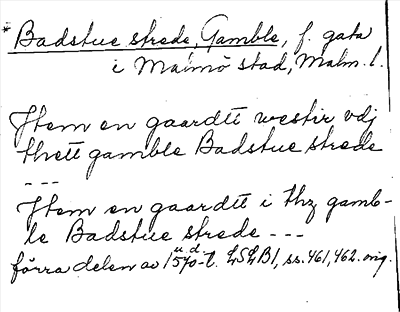 * Badstue strede, Gamble, f. gata
i Malmö stad, Malm. l.
Jtem en gaardtt westir vdj
thett gamble Badstue strede
---
Jtem en gaardtt i thz gamb-
le Badstue strede ---
förra delen av 1570-t. u.d. LSLB1, ss. 461, 462. orig.